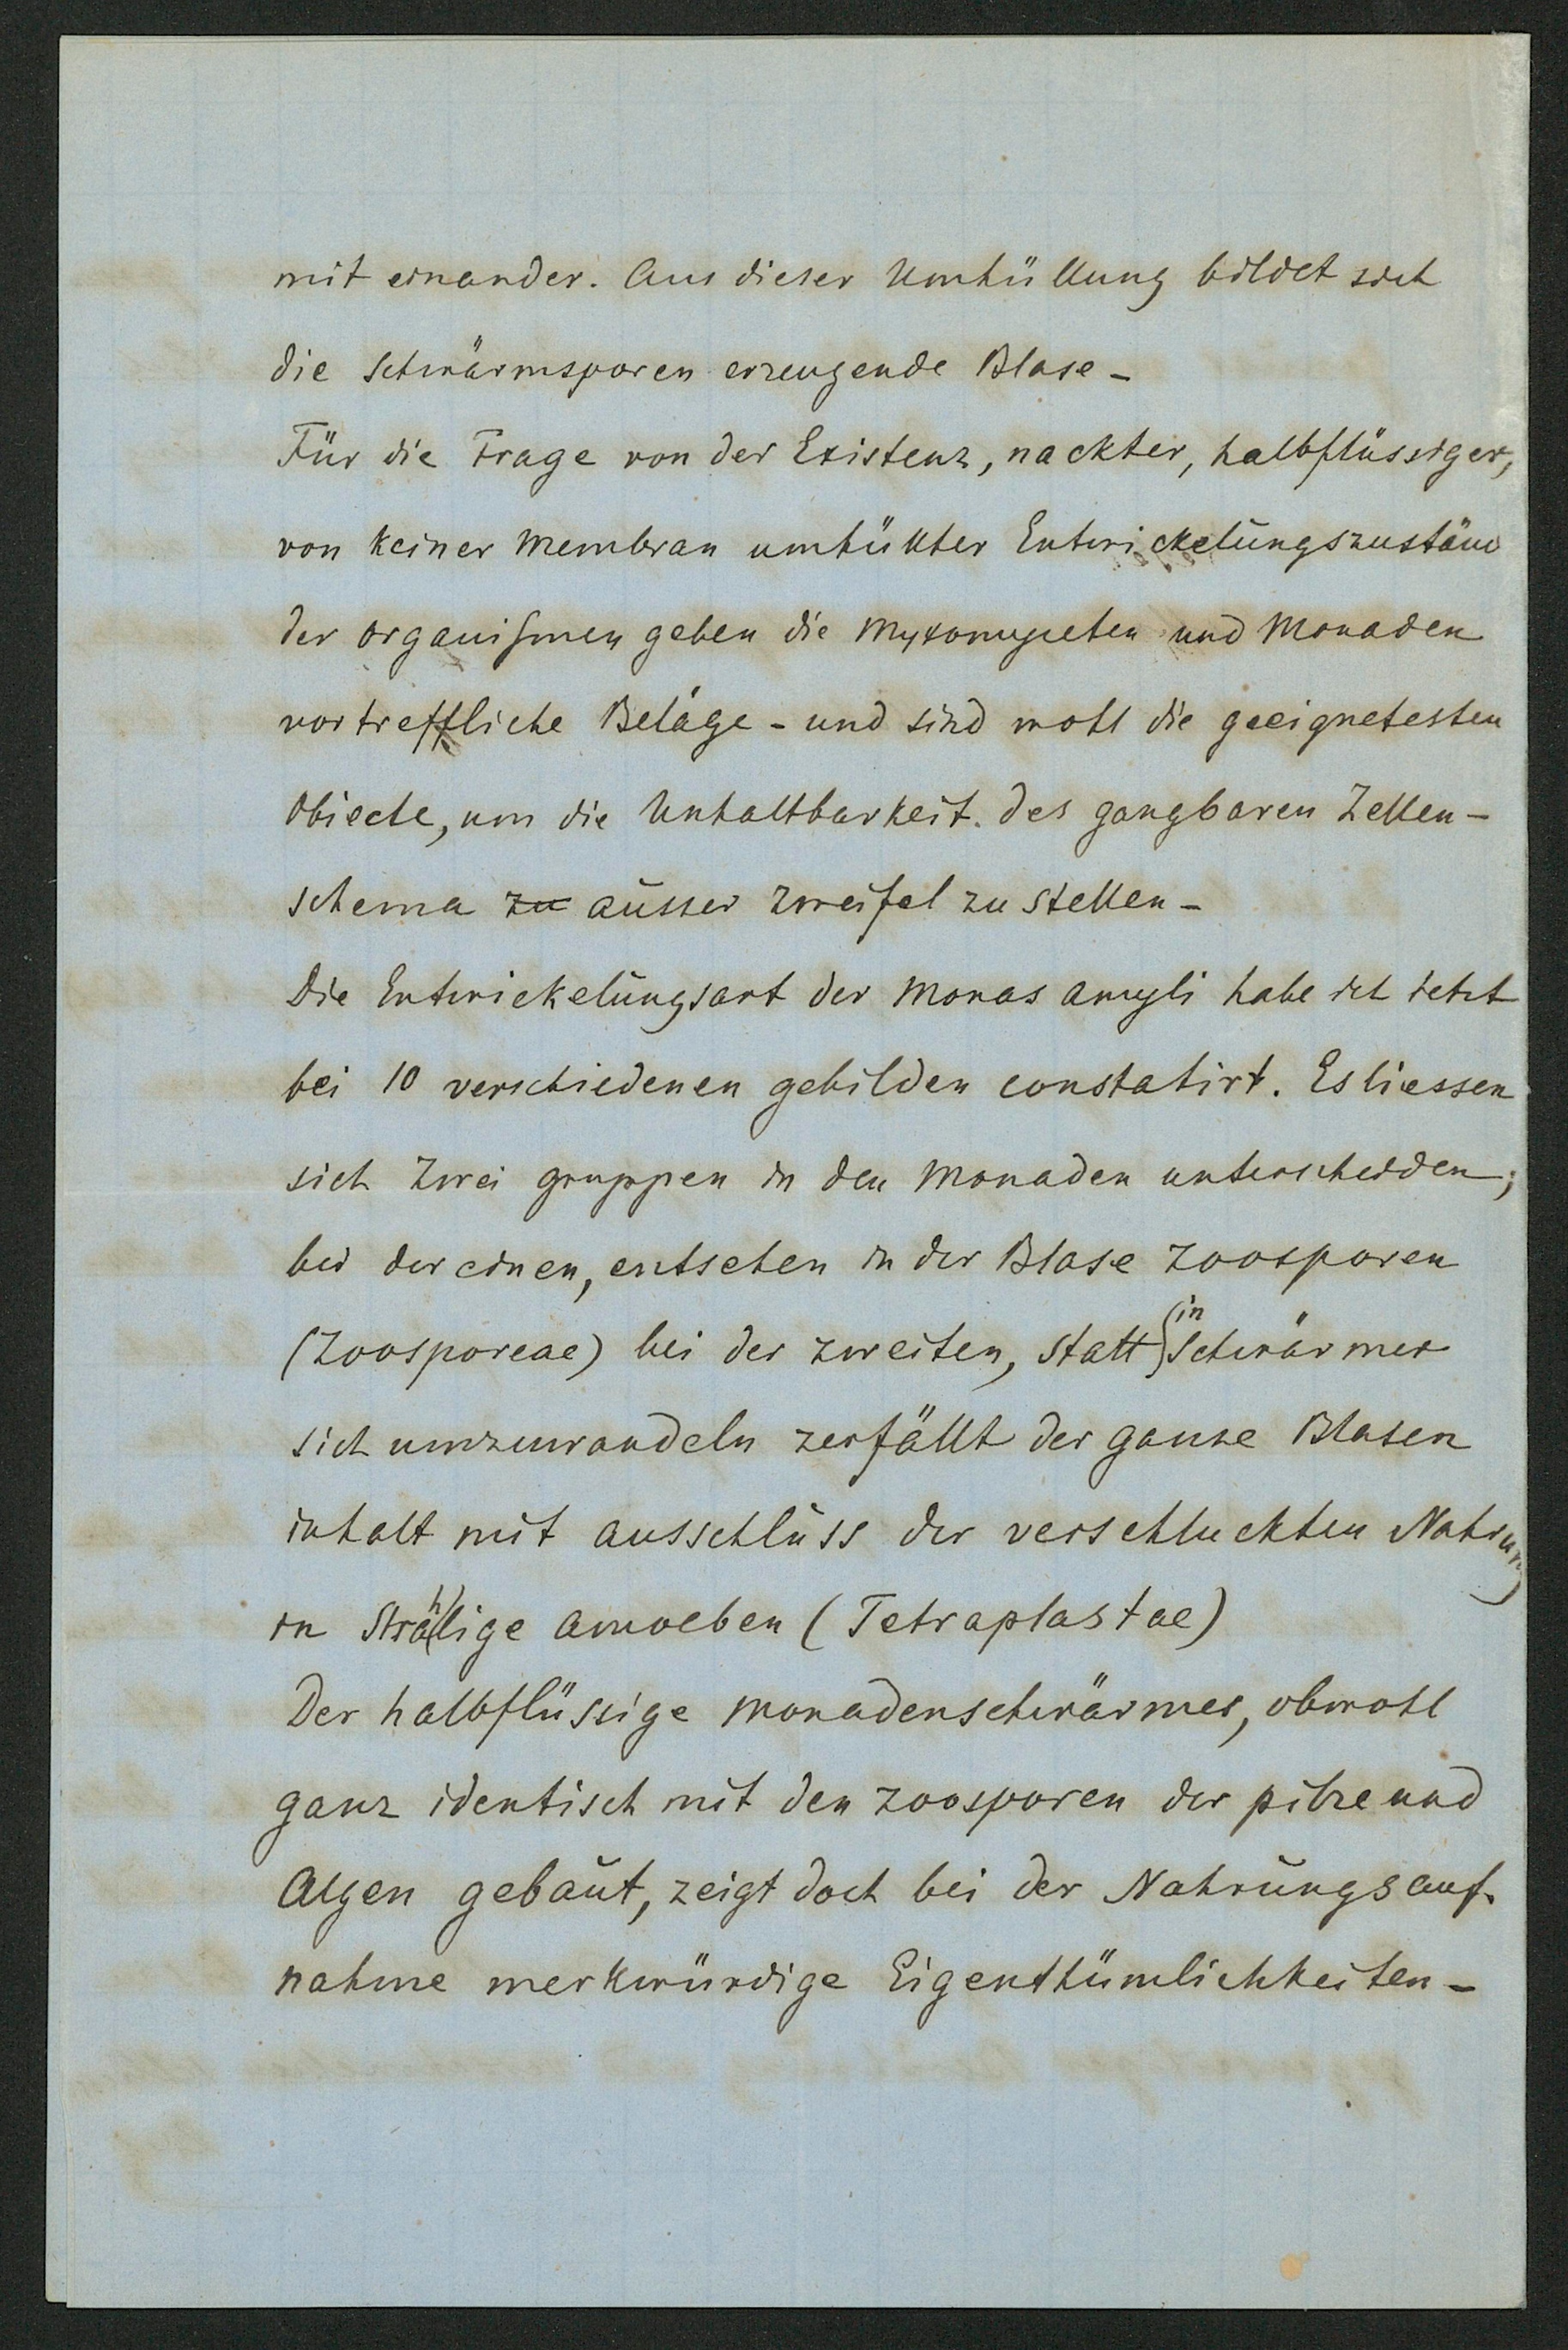 mit einander. Aus dieser Umhüllung bildet sich
die Schwärmsporen erzeugende Blase -
Für die Frage von der Existenz, nackter, halbflüssiger,
von keiner Membran umhüllter Entwickelungszustän
der Organismen geben die Myxomyceten und Monaden
vortreffliche Beläge - und sind wohl die geeignetesten
Obiecte, um die Unhaltbarkeit des gangbaren Zellen-
schema zu ausser Zweifel zu stellen -
Die Entwickelungsart der Monas amyli habe ich ietzt
bei 10 verschiedenen gebilden constatirt. Es liessen
sich zwei gruppen in den Monaden unterscheiden;
bei der einen, entsehen in der Blase Zoosporen
(Zoosporeae) bei der zweiten, statt in Schwärmer
sich umzuwandeln zerfällt der ganze Blasen
inhalt mit ausschluss der verschluckten Nahrung
in Strählige Amoeben (Tetraplastae)
Der halbflüssige Monadenschwärmer, obwohl
ganz identisch mit den Zoosporen der pilze und
Algen gebaut, zeigt doch bei der Nahrungsauf-
nahme merkwürdige Eigenthümlichkeiten -